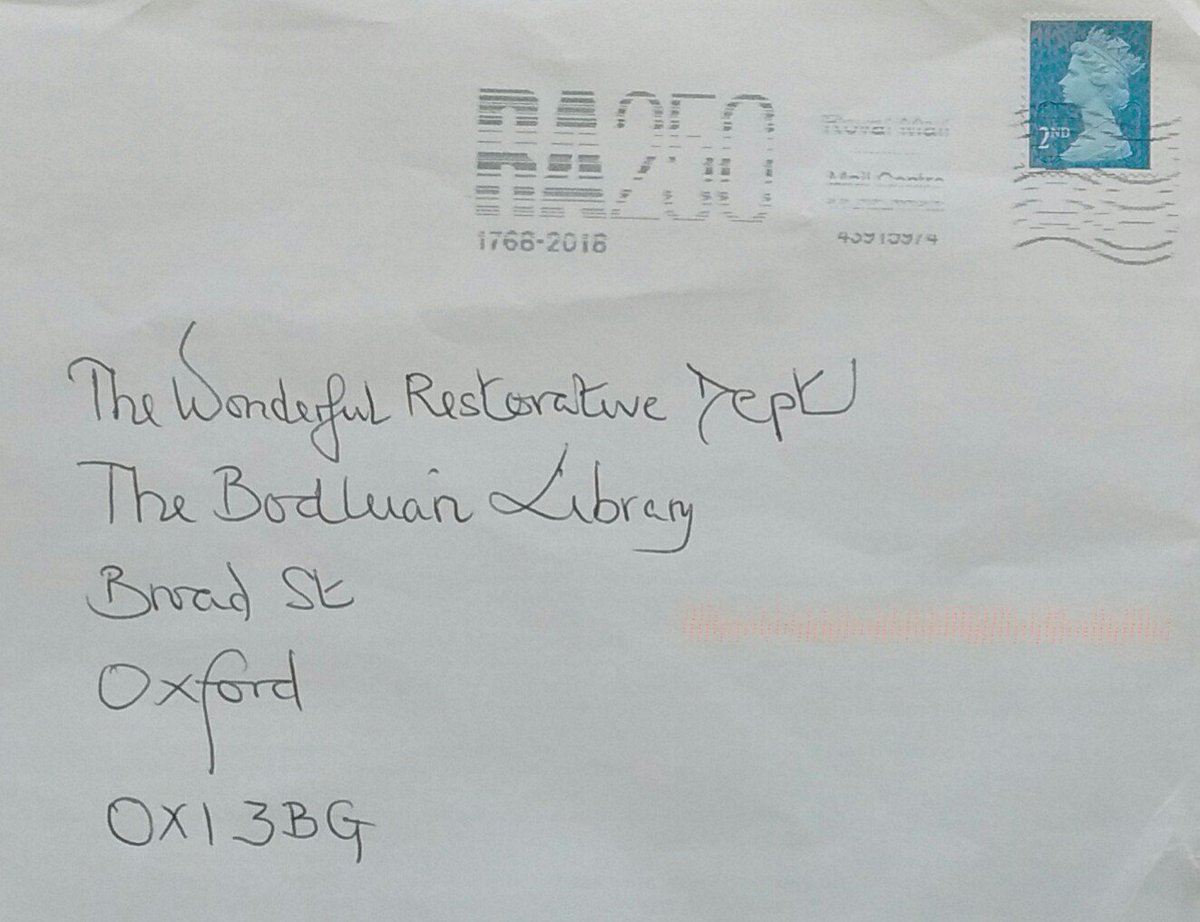 RA250
1768-2018
Royal Mail
Mail Centre
43915974
2ND
The Wonderful Restorative Dept
The Bodleian Library
Broad St
Oxford
OX1 3BG